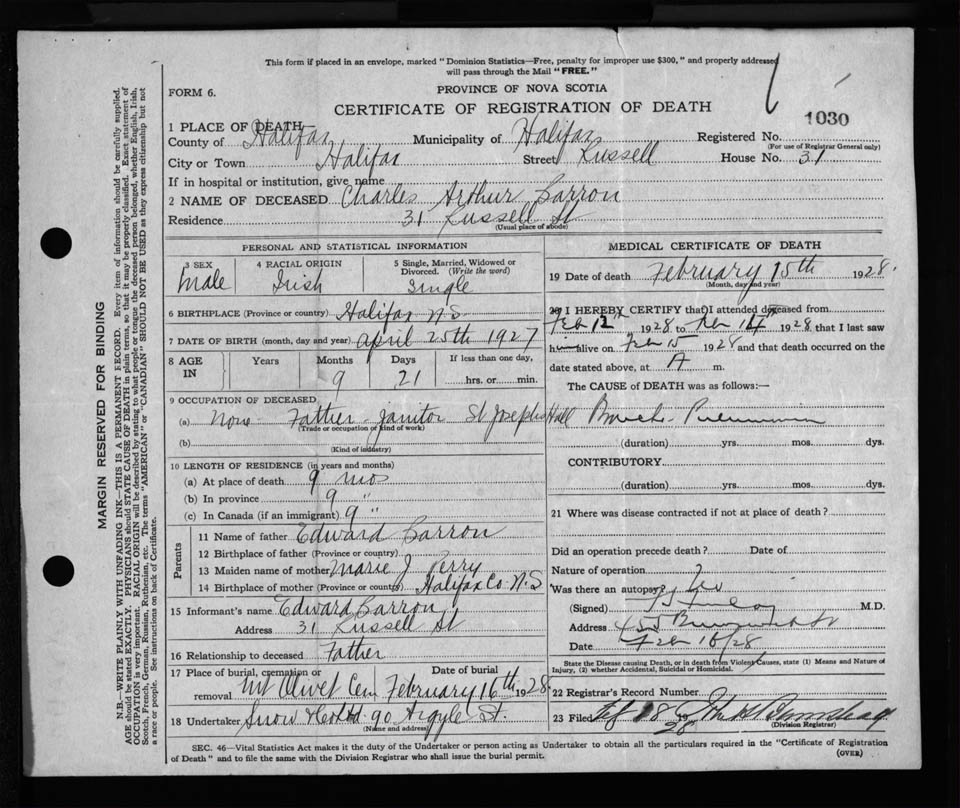 This form if placed in an envelope, marked "Dominion Statistics—Free, penalty for improper use $300," and properly addressed
will pass through the Mail "FREE."
FORM 6.
PROVINCE OF NOVA SCOTIA
CERTIFICATE OF REGISTRATION OF DEATH
1030
1 PLACE OF DEATH
County of Halifax Municipality of Halifax Registered No.
(For use of Registrar General only)
City or Town Halifax Street Russell House No. 31
If in hospital or institution, give name
2 NAME OF DECEASED Charles Arthur Barron
Residence 31 Russell St
(Usual place of abode)
PERSONAL AND STATISTICAL INFORMATION
3 SEX
Male
4 RACIAL ORIGIN
Irish
5 Single, Married, Widowed or
Divorced. (Write the word)
Single
6 BIRTHPLACE (Province or country) Halifax N.S.
7 DATE OF BIRTH (month, day and year) April 25th 1927
8 AGE
IN
Years
Months
9
Days
21
If less than one day,
hrs. or min.
9 OCCUPATION OF DECEASED
(a) None Father - janitor St Josephs Hall
(Trade or occupation or kind of work)
(b)
(Kind of industry)
10 LENGTH OF RESIDENCE (in years and months)
(a) At place of death 9 mos
(b) In province 9 "
(c) In Canada (if an immigrant) 9 "
Parents
11 Name of father Edward Barron
12 Birthplace of father (Province or country)
13 Maiden name of mother Marie J Perry
14 Birthplace of mother (Province or country) Halifax Co. N.S
15 Informant's name Edward Barron
Address 31 Russell St
16 Relationship to deceased Father
17 Place of burial, cremation or
removal Mt Olivet Cem
Date of burial
February 16th 1928
18 Undertaker Snow & Co Ltd 90 Argyle St.
(Name and address)
MEDICAL CERTIFICATE OF DEATH
19 Date of death February 15th 1928
(Month, day and year)
20 I HEREBY CERTIFY that I attended deceased from
Feb 12th 1928 to Feb 14th 1928 that I last saw
him alive on Feb 15 1928 and that death occurred on the
date stated above, at A m.
The CAUSE of DEATH was as follows:—
Bronch. Pneumonia
(duration) yrs. mos. dys.
CONTRIBUTORY
(duration) yrs. mos. dys.
21 Where was disease contracted if not at place of death?
Did an operation precede death? Date of
Nature of operation
Was there an autopsy?
(Signed) M.D.
Address
Date Feb /28
State the Disease causing Death, or in death from Violent Causes, state (1) Means and Nature of
Injury, (2) whether Accidental, Suicidal or Homicidal.
22 Registrar's Record Number
23 Filed 1928
(Division Registrar)
SEC. 46—Vital Statistics Act makes it the duty of the Undertaker or person acting as Undertaker to obtain all the particulars required in the "Certificate of Registration
of Death" and to file the same with the Division Registrar who shall issue the burial permit.
(OVER)
MARGIN RESERVED FOR BINDING
N.B.—WRITE PLAINLY WITH UNFADING INK—THIS IS A PERMANENT RECORD. Every item of information should be carefully supplied.
AGE should be stated EXACTLY. PHYSICIANS should STATE CAUSE OF DEATH in plain terms, so that it may be properly classified. Exact statement of
OCCUPATION is very important. RACIAL ORIGIN will be described by stating to what people or tongue the deceased person belonged, whether English, Irish,
Scotch, French, German, Russian, Ruthenian, etc. The terms "AMERICAN" or "CANADIAN" SHOULD NOT BE USED as they express citizenship but not
a race or people. See instructions on back of Certificate.